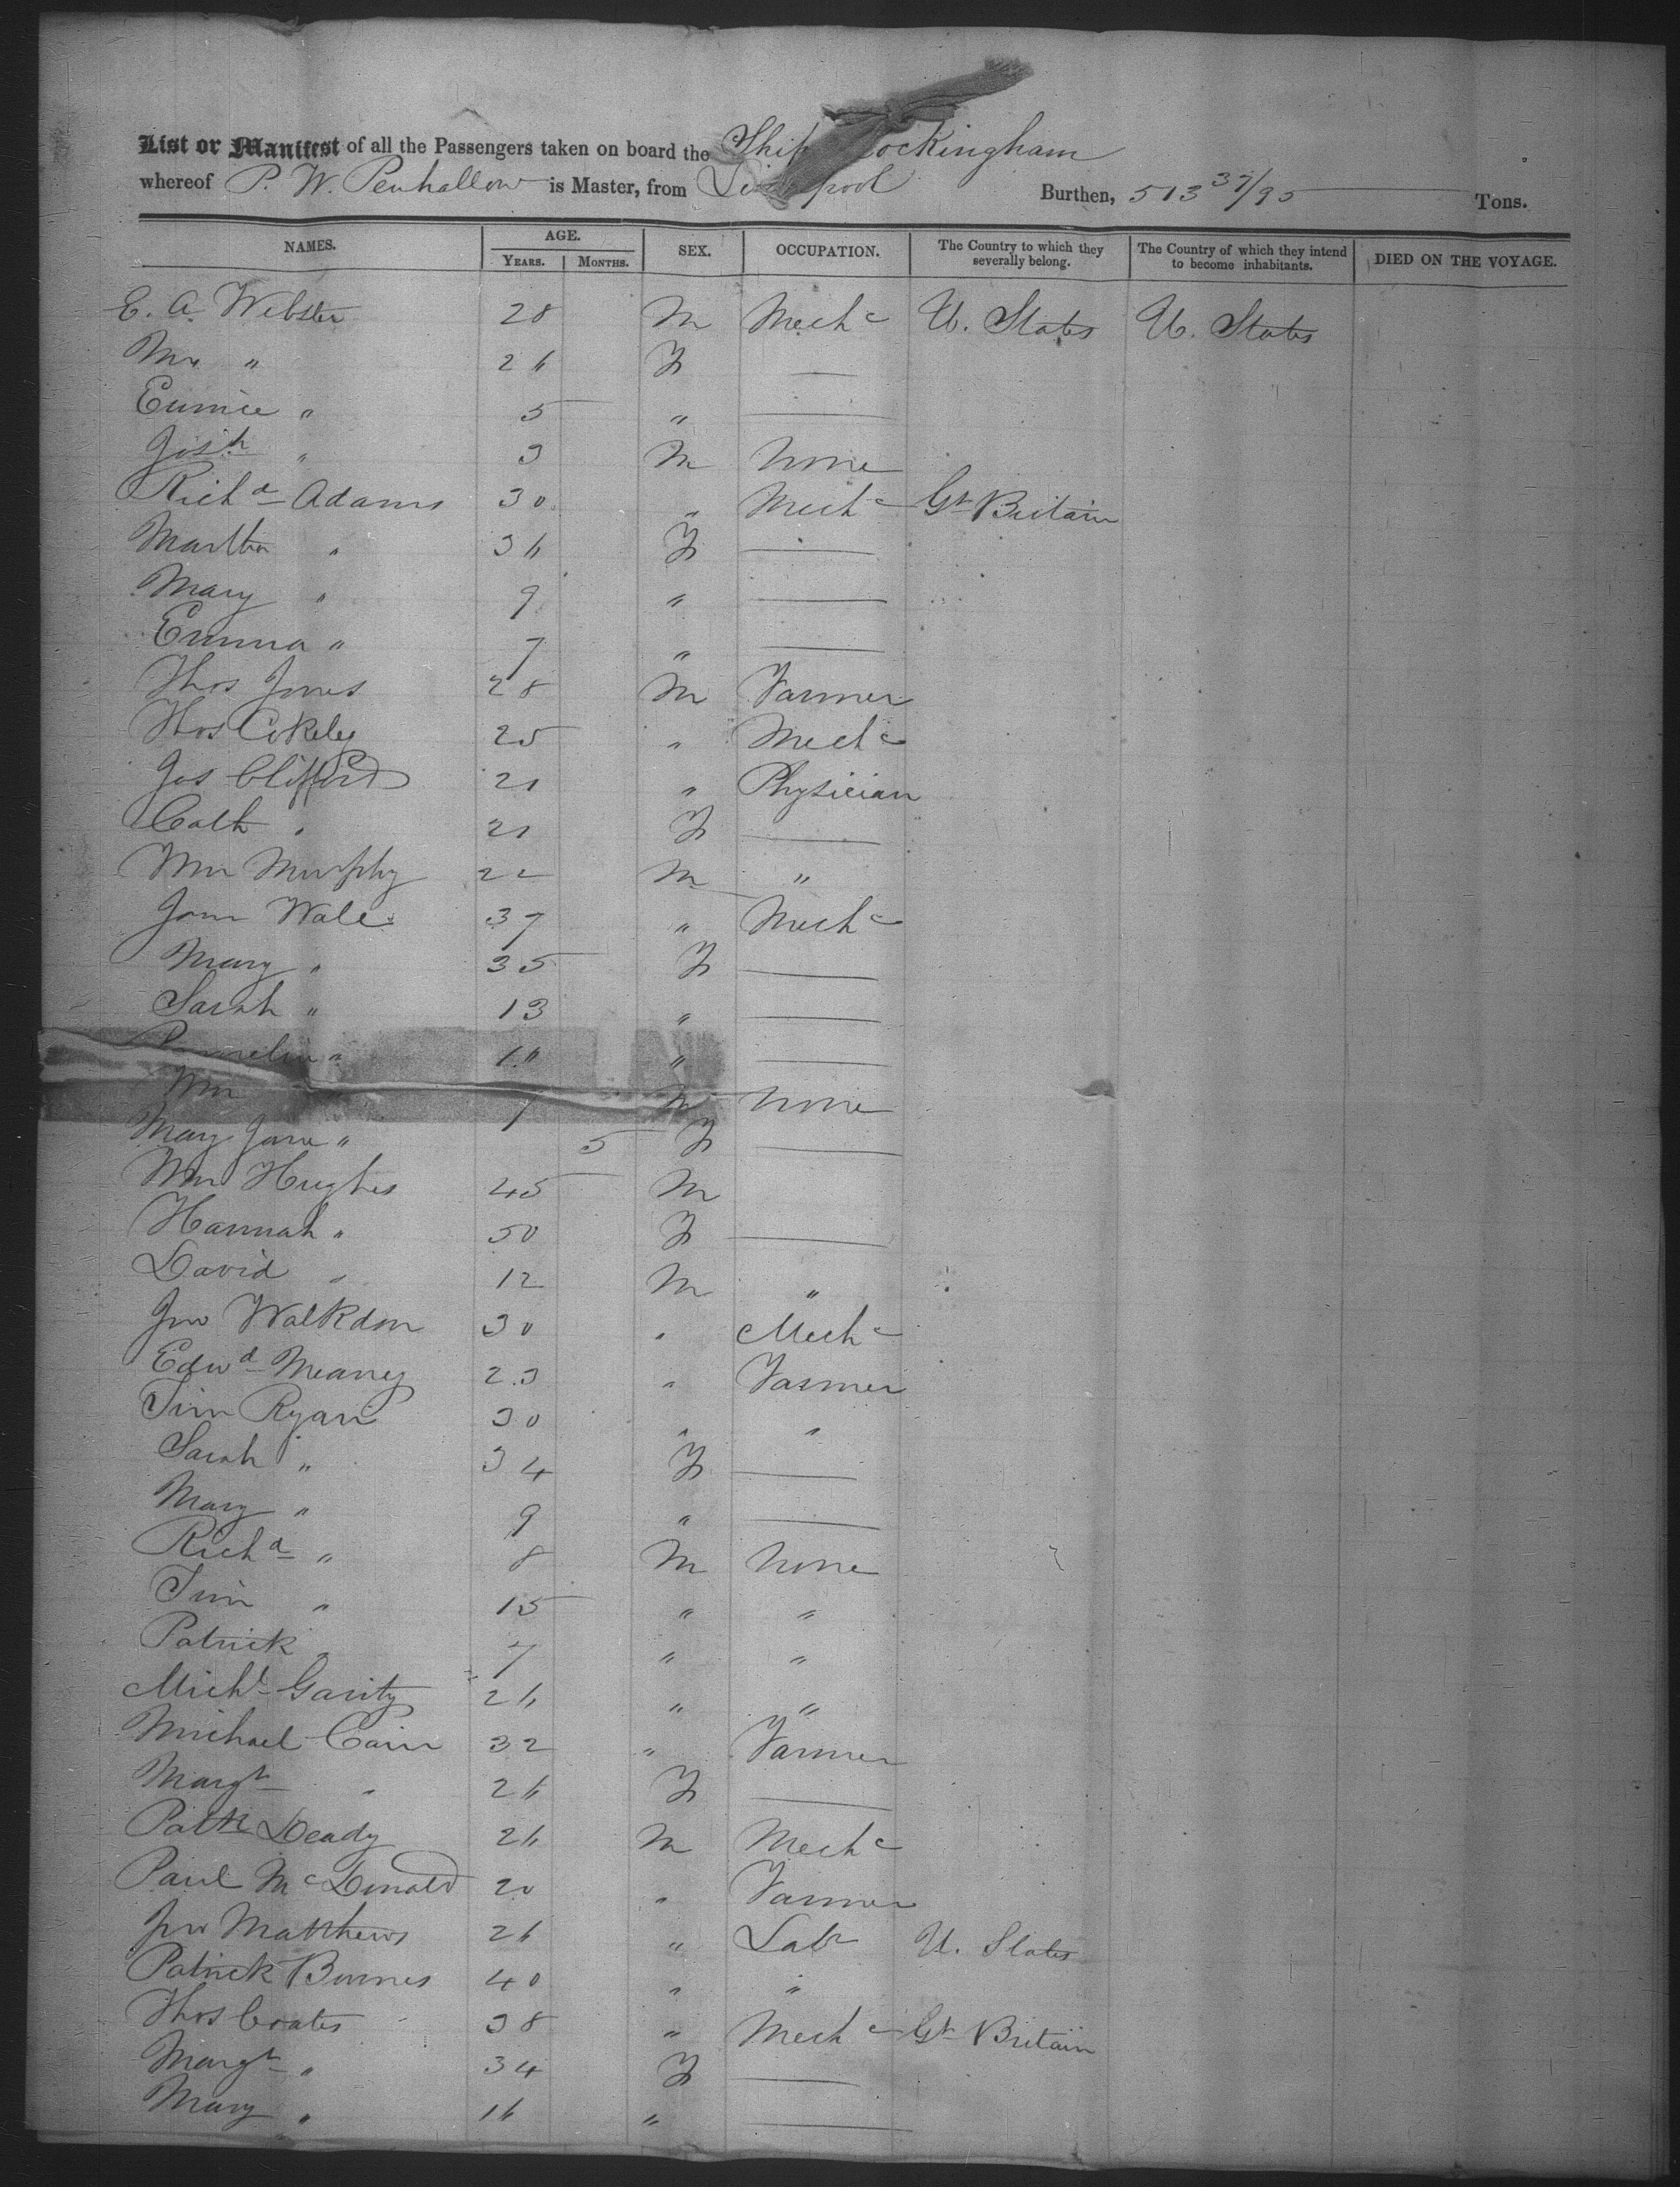 List or Manifest of all the Passengers taken on board the Ship ockingham
whereof P. W. Penhallow is Master, from Liverpool Burthen, 513 37/95 Tons.
NAMES. AGE. YEARS. MONTHS. SEX. OCCUPATION. The Country to which they severally belong. The Country of which they intend to become inhabitants. DIED ON THE VOYAGE.
E. A. Webster 28 M Mechc U. States U. States
Mrs " 26 F —
Eunice " 5 " —
Josh " 3 M None
Richd Adams 30 " Mechc Gt Britain
Martha " 36 F —
Mary " 9 " —
Emma " 7 " —
Thos Jones 28 M Farmer
Thos 25 " Mechc
Jas Clifford 21 " Physician
Cath " 21 F —
Wm Murphy 22 M "
John Wale 37 " Mechc
Mary " 35 F —
Sarah " 13 " —
" " —
Wm 7 M None
Mary Jane " 5 F —
Wm Hughes 45 M
Hannah " 50 F —
David " 12 M "
Jno Walkdon 30 " Mechc
Edwd Meaney 23 " Farmer
Tim Ryan 30 " "
Sarah " 34 F —
Mary " 9 " —
Richd " 8 M None
Tim " 15 " "
Patrick " 7 " "
Michl Garity 26 " "
Michael Cain 32 " Farmer
Margt " 26 F —
Patk Deady 26 M Mechc
Paul McDonald 20 " Farmer
Jno Matthews 26 " Labr U. States
Patrick Burnes 40 " "
Thos Coates 38 " Mechc Gt Britain
Margt " 34 F —
Mary " 16 " —